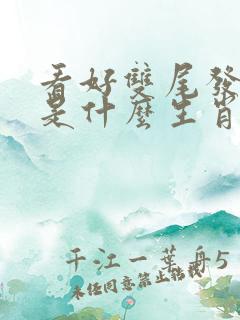 看好雙尾發
是什麼生肖
千江一葉舟5
未经同意禁止转载